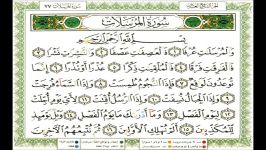 سُورَةُ المُرْسَلَاتِ
بِسْمِ ٱللَّهِ ٱلرَّحْمَٰنِ ٱلرَّحِيمِ
وَٱلْمُرْسَلَٰتِ عُرْفًا ١ فَٱلْعَٰصِفَٰتِ عَصْفًا ٢ وَٱلنَّٰشِرَٰتِ نَشْرًا ٣
فَٱلْفَٰرِقَٰتِ فَرْقًا ٤ فَٱلْمُلْقِيَٰتِ ذِكْرًا ٥ عُذْرًا أَوْ نُذْرًا ٦ إِنَّمَا
تُوعَدُونَ لَوَٰقِعٌ ٧ فَإِذَا ٱلنُّجُومُ طُمِسَتْ ٨ وَإِذَا ٱلسَّمَآءُ فُرِجَتْ ٩
وَإِذَا ٱلْجِبَالُ نُسِفَتْ ١٠ وَإِذَا ٱلرُّسُلُ أُقِّتَتْ ١١ لِأَيِّ يَوْمٍ أُجِّلَتْ ١٢
لِيَوْمِ ٱلْفَصْلِ ١٣ وَمَآ أَدْرَىٰكَ مَا يَوْمُ ٱلْفَصْلِ ١٤ وَيْلٌ يَوْمَئِذٍ
لِّلْمُكَذِّبِينَ ١٥ أَلَمْ نُهْلِكِ ٱلْأَوَّلِينَ ١٦ ثُمَّ نُتْبِعُهُمُ ٱلْءَاخِرِينَ